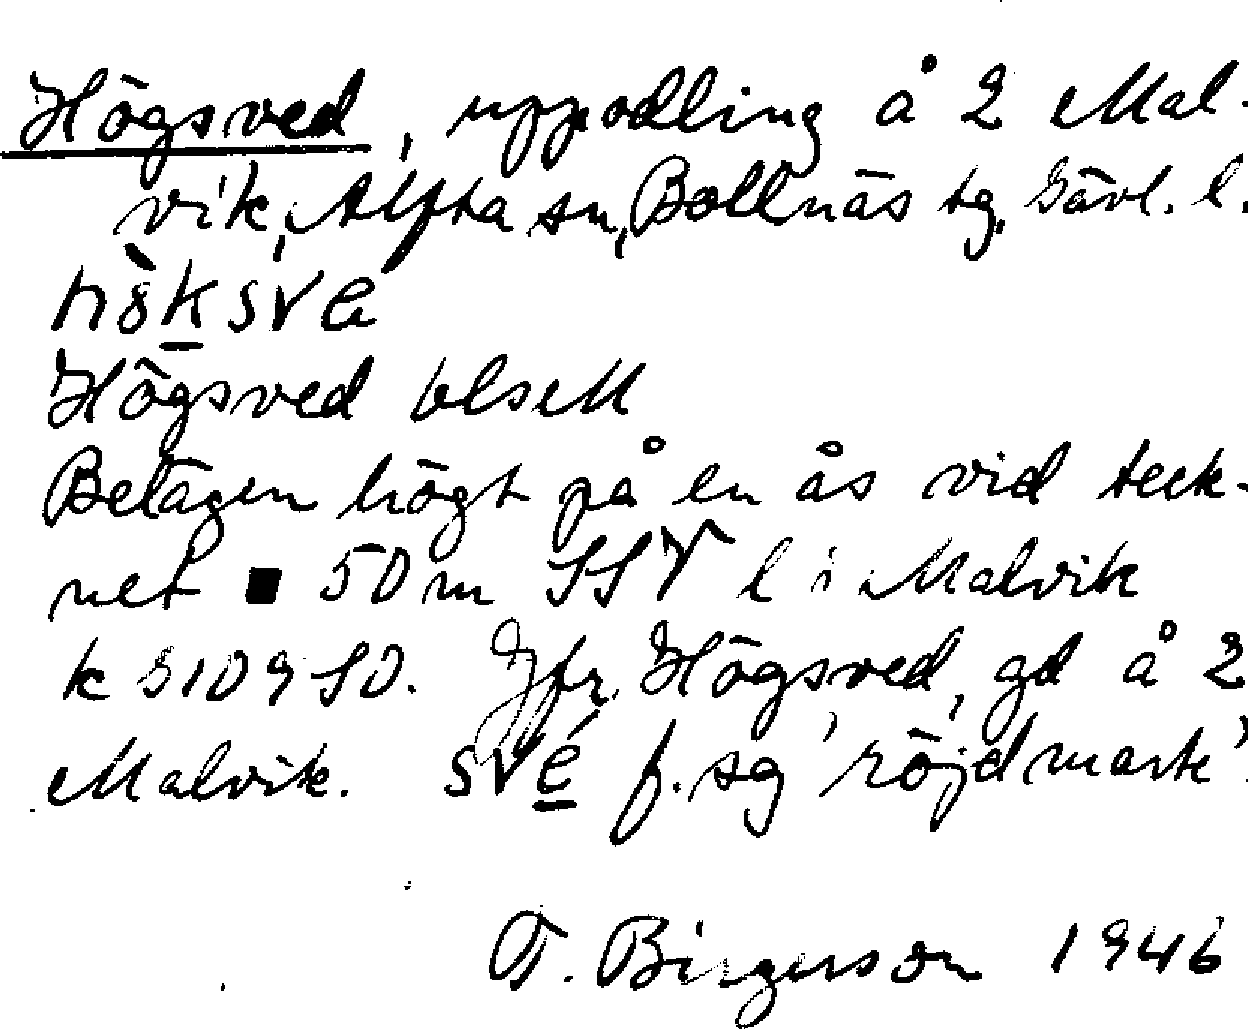 Högsved, uppodling å 2 Mal-
vik, Alfta sn, Bollnäs tg, Gävl. l.
hö̀ksve
Högsved blsell
Belägen högt på en ås vid teck-
net ■ 50 m SSV l i Malvik
k 3109 SO. Jfr. Högsved, gd å 2
Malvik. své f. sg 'röjd mark'.
T. Birgerson 1946